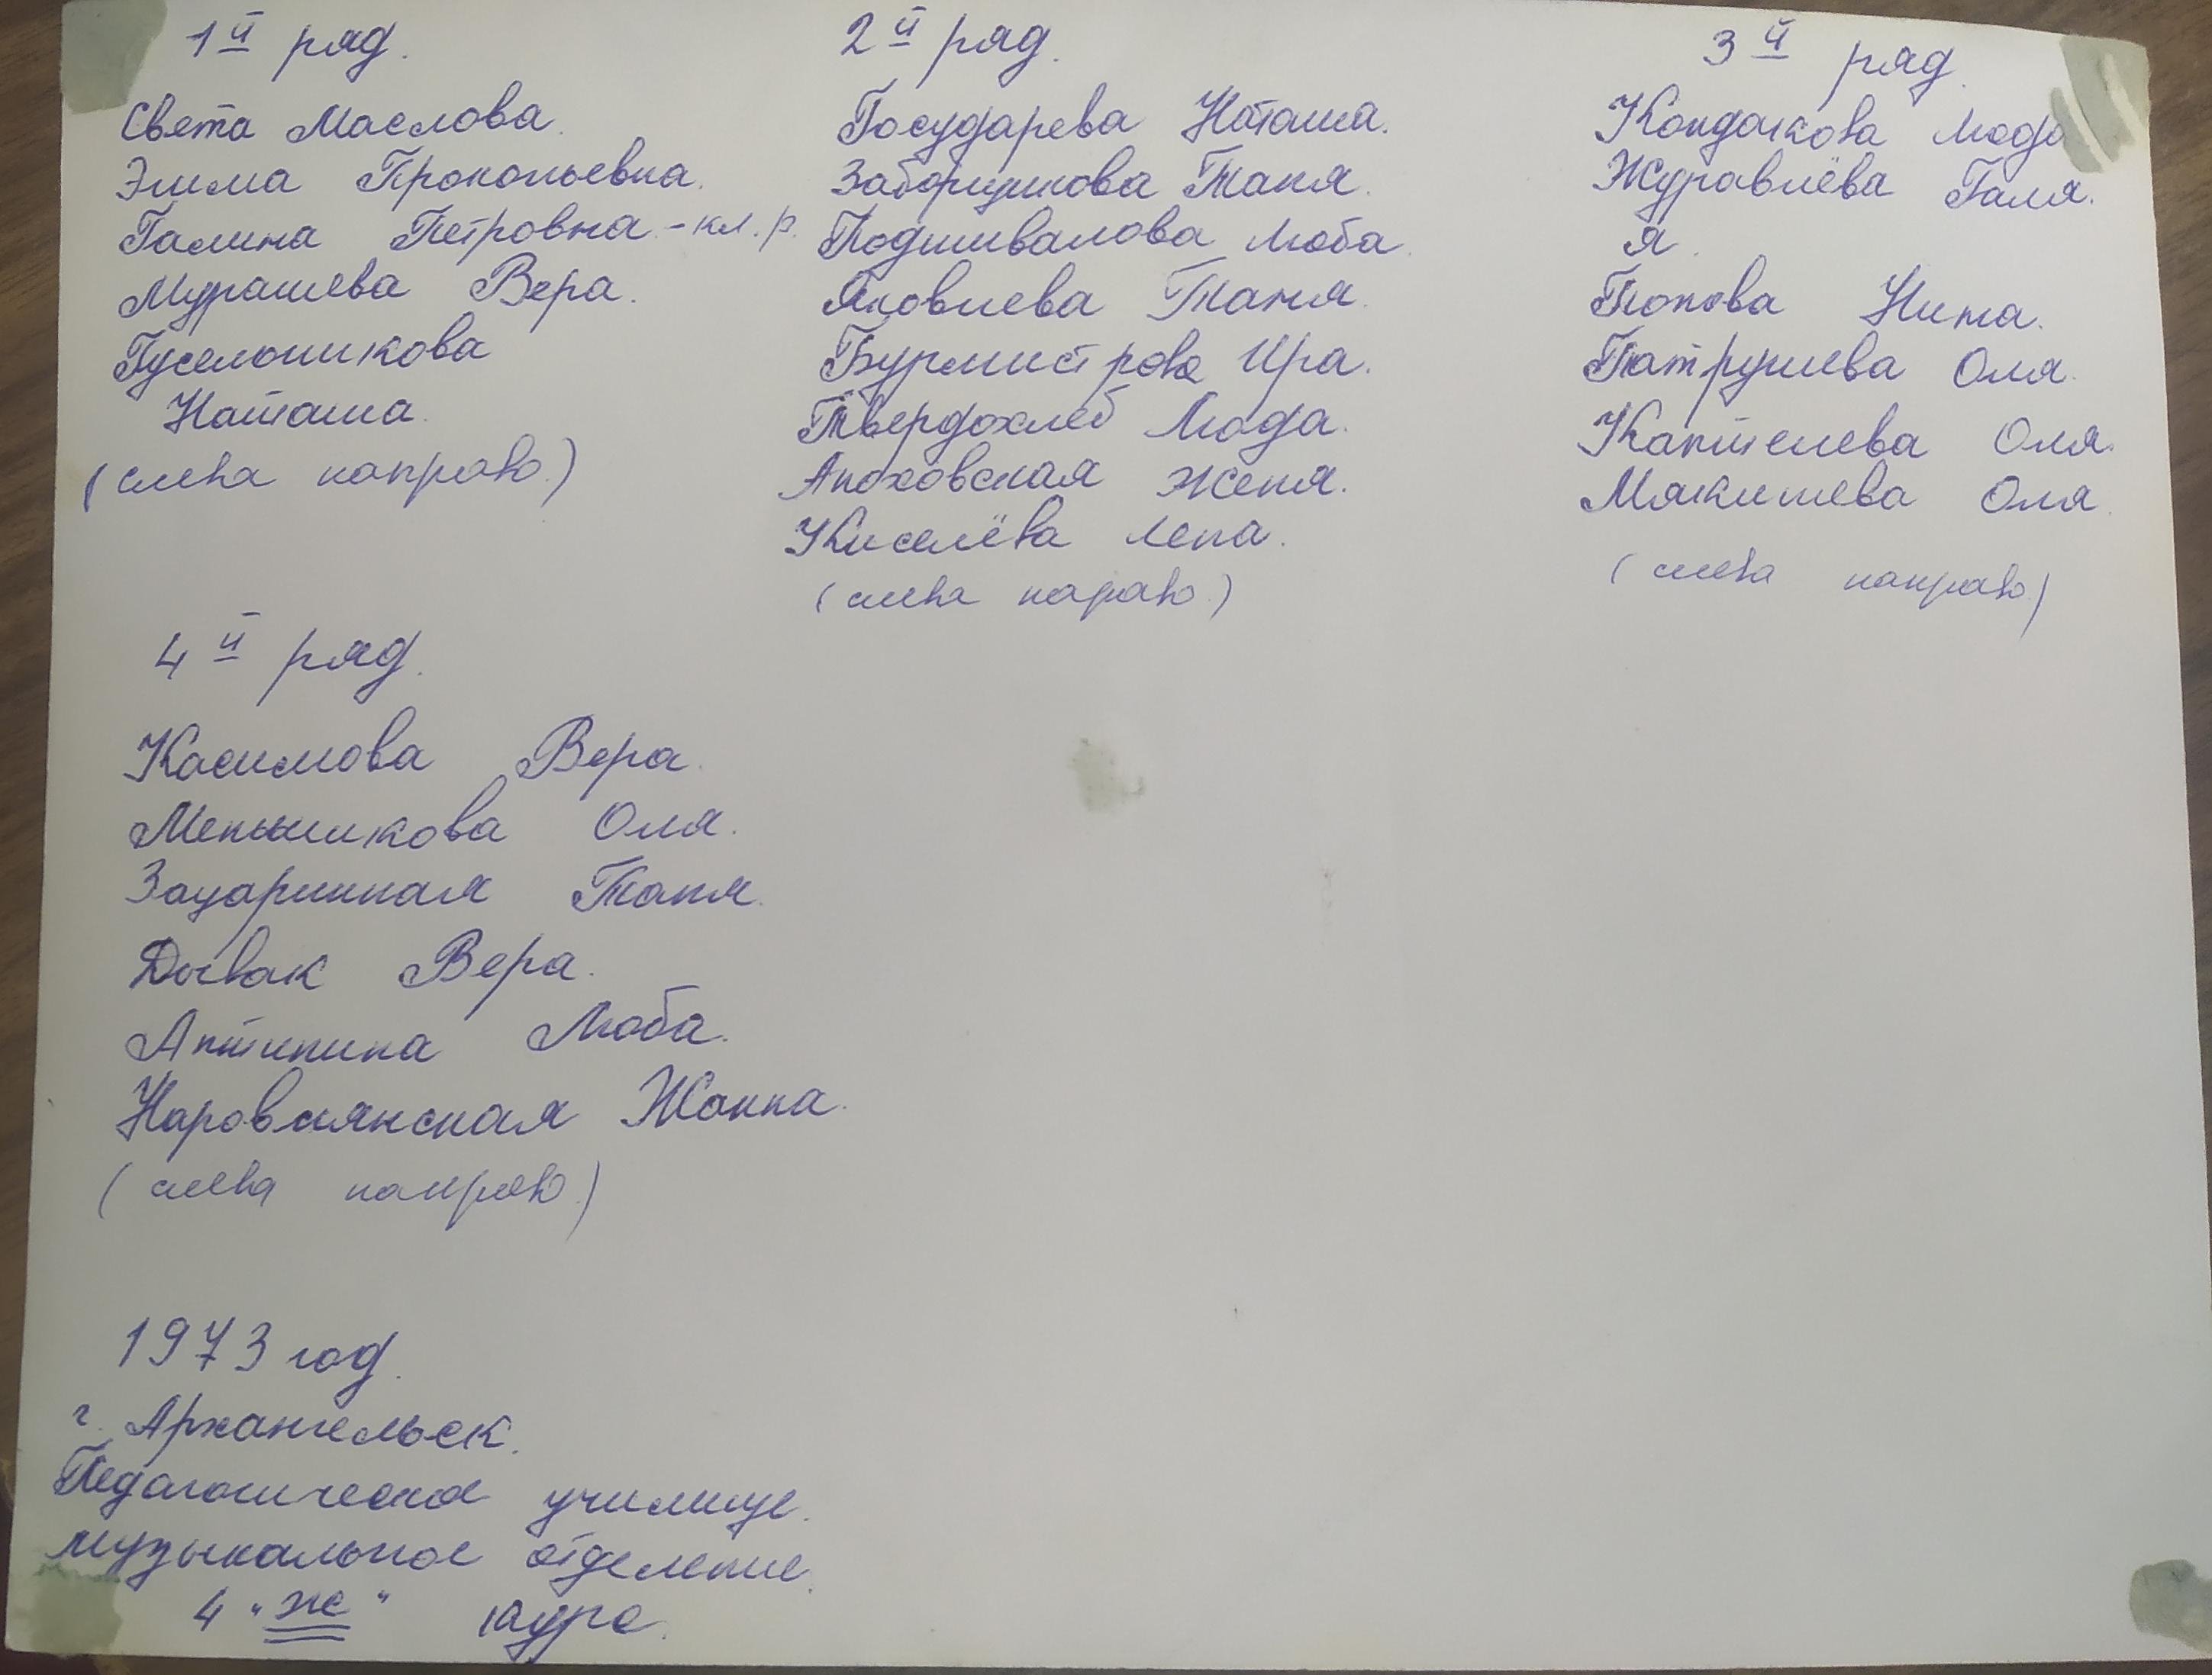 1й ряд.
Света Маслова.
Эмма Прокопьевна.
Галина Петровна - кл. р.
Мурашева Вера.
Гусельникова
Наташа.
(слева направо.)
2й ряд.
Государева Наташа.
Заборщикова Таня.
Подшивалова Люба.
Яковлева Таня.
Бурмистрова Ира.
Твердохлеб Люда.
Аноховская Женя.
Киселёва Лена.
(слева нараво.)
3й ряд.
Кондакова Люда
Журавлёва Галя.
Я.
Попова Нина.
Патрушева Оля.
Каптелева Оля.
Мякишева Оля.
(слева направо.)
4й ряд.
Касимова Вера.
Меньшикова Оля.
Таня.
Дывак Вера.
Антипина Люба.
Наровлянская Жанна.
(слева направо.)
1973 год.
г. Архангельск.
Педагогическое училище.
музыкальное отделение.
4 "ж" курс.